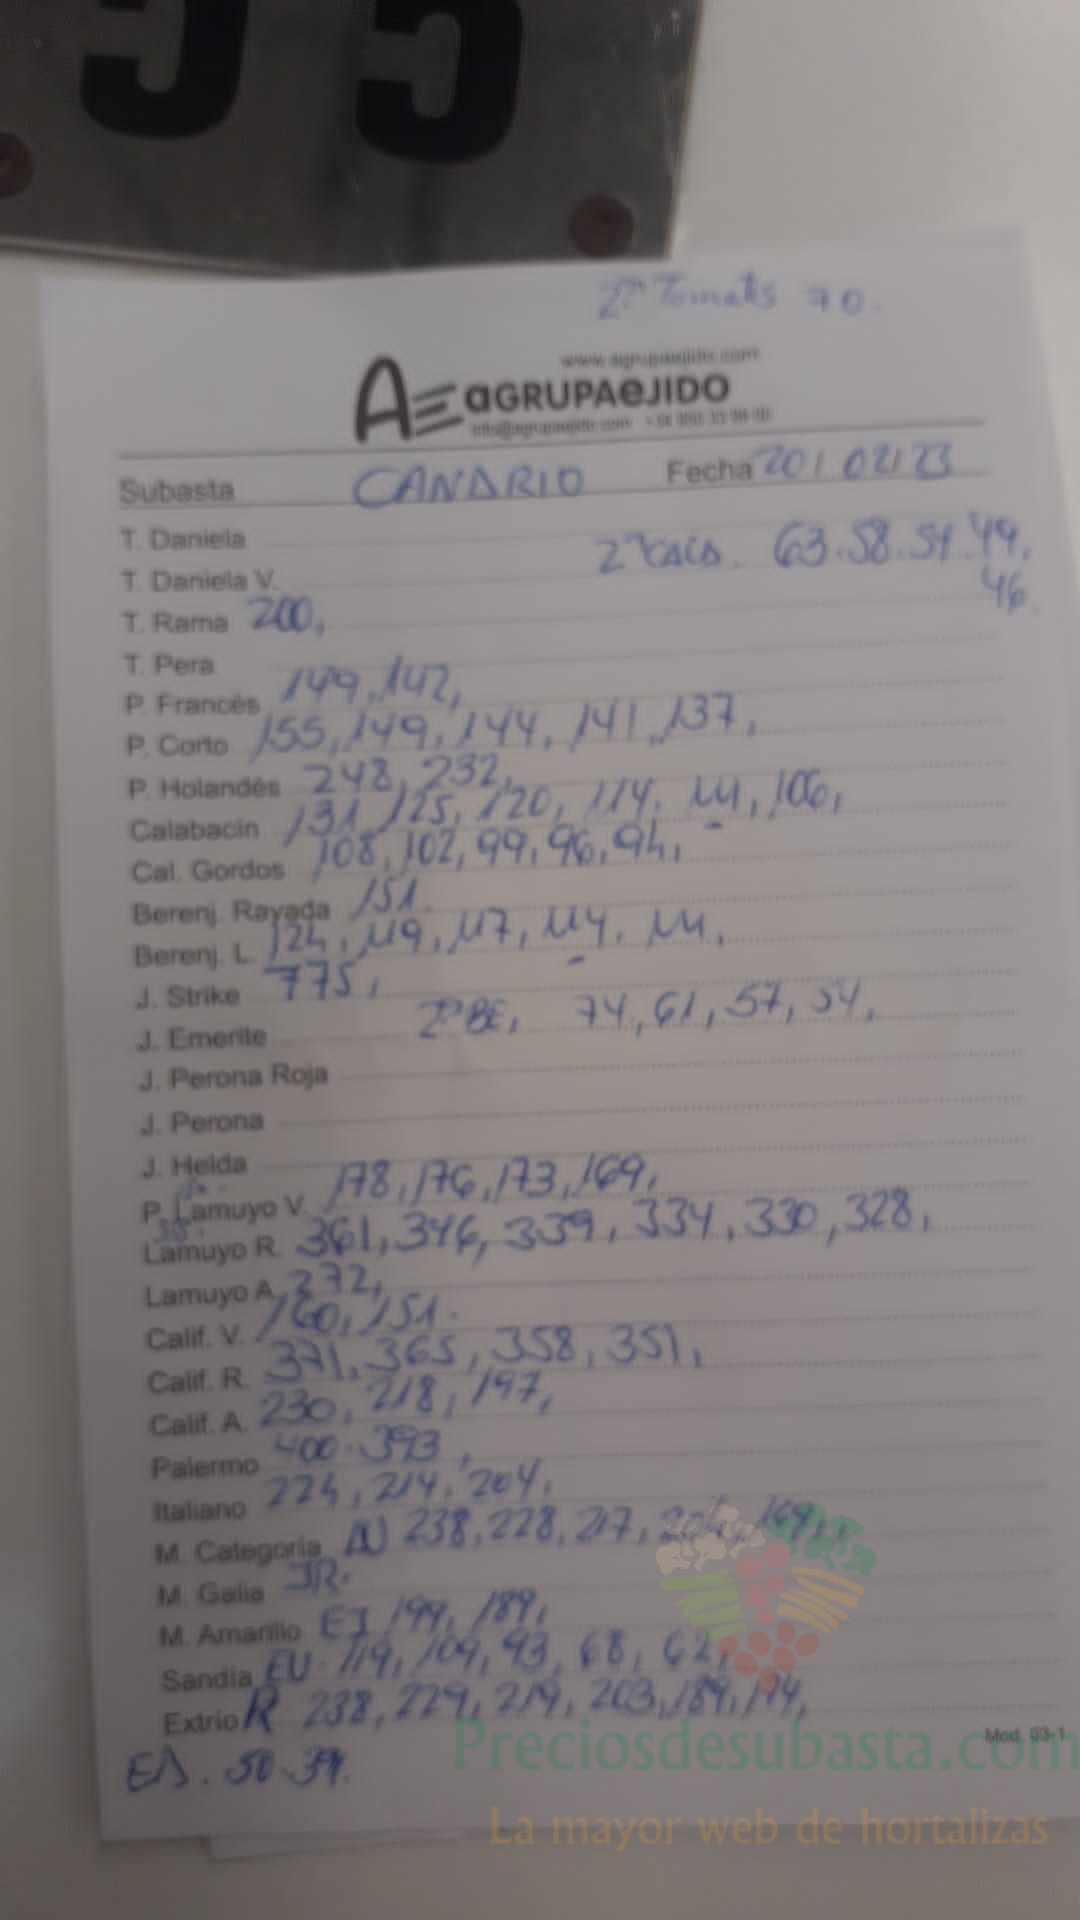 55
2ª Tomates 70.
www.agrupaejido.com
AGRUPAEJIDO
info@agrupaejido.com
Subasta CANARIO Fecha 20/02/23
T. Daniela
2ª CACA. 63.58.54.49,
T. Daniela V.
46.
T. Rama 200,
T. Pera
P. Francés 149,142,
P. Corto 155,149,144,141,137,
P. Holandés 248,232,
Calabacín 131,125,120,114.111,106,
Cal. Gordos 108,102,99,96,94,
Berenj. Rayada 151.
Berenj. L. 124,119,117,114.111.
J. Strike 775,
2ª BE, 74,61,57,54,
J. Emerite
J. Perona Roja
J. Perona
J. Helda
P. Lamuyo V. 178,176,173,169,
Lamuyo R. 361,346,339,334,330,328,
Lamuyo A. 272,
Calif. V. 160,151.
Calif. R. 371.365,358,351,
Calif. A. 230,218,197,
Palermo 400.393,
Italiano 224,214,204,
M. Categoría AU 238,228,217,204,169,
M. Galia JR.
M. Amarillo EJ 199,189,
Sandía EU. 119,109,93,68,62,
Extrio R 238,229,219,203,189,174,
Mod. 03-1
EA. 50.39.
Preciosdesubasta.com
La mayor web de hortalizas